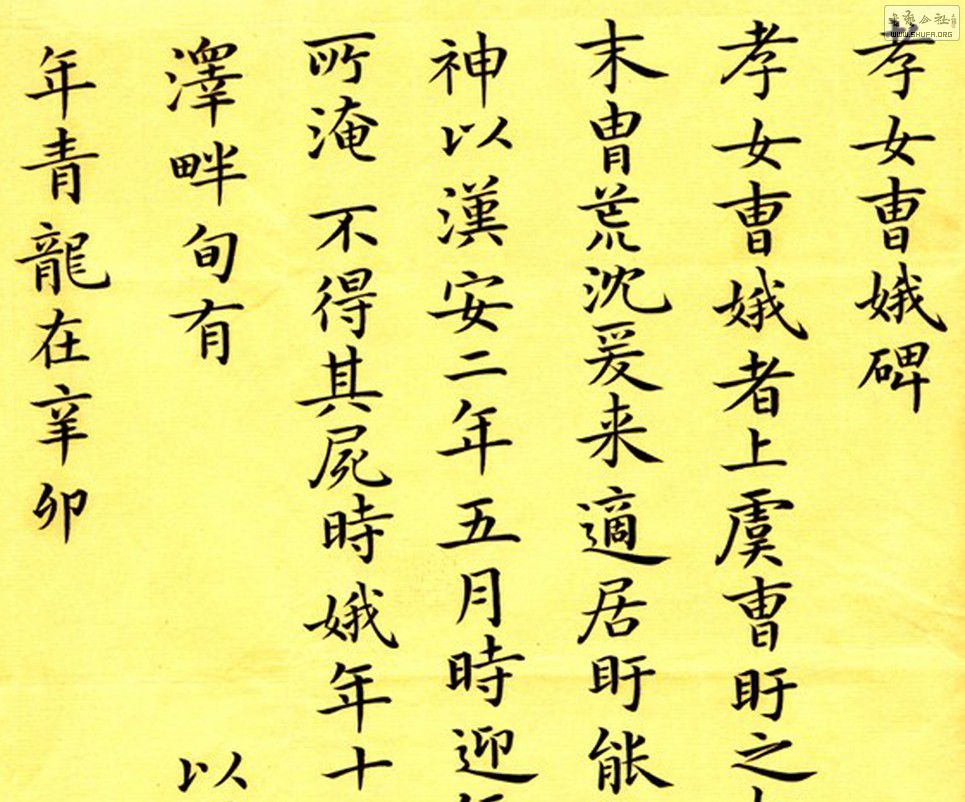 書藝公社
WWW.SHUFA.ORG
孝女曹娥碑
孝女曹娥者上虞曹盱之
末胄荒沈爰来適居盱能
神以漢安二年五月時迎
所淹不得其屍時娥年十
澤畔旬有 以
年青龍在辛卯